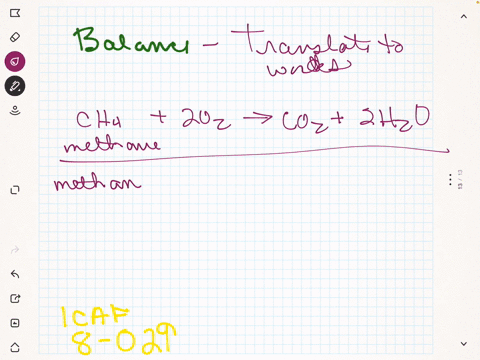 Balance - Translate to
words
CH4 + 2O2 → CO2 + 2H2O
methane
methan
ICAF
8-029
13 / 13